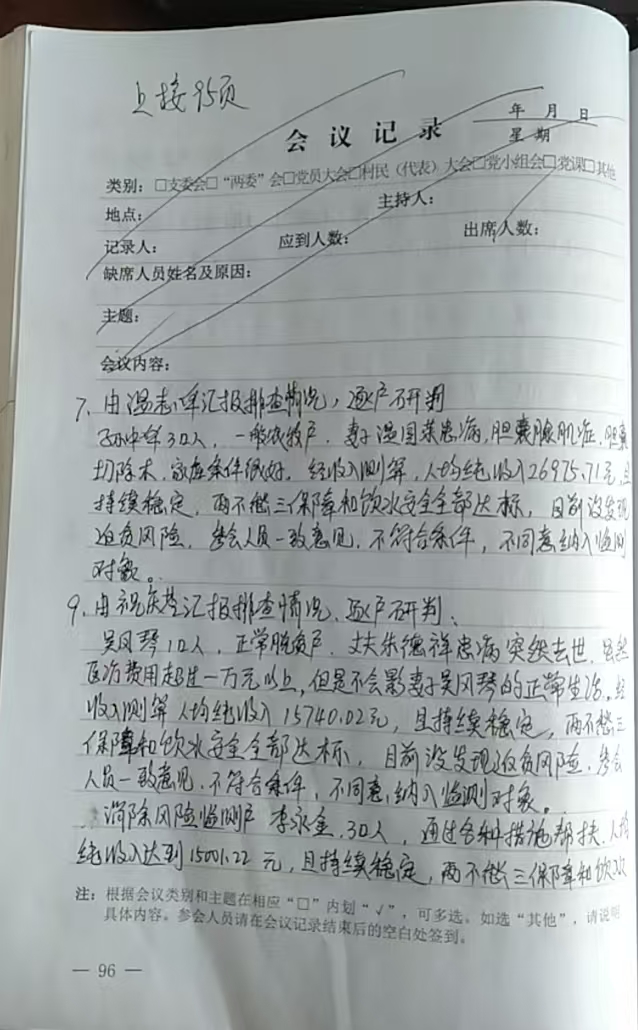 上接95页
会议记录
年 月 日
星期
类别：□支委会□“两委”会□党员大会□村民（代表）大会□党小组会□党课□其他
地点： 主持人：
记录人： 应到人数： 出席人数：
缺席人员姓名及原因：
主题：
会议内容：
7、由温志军汇报排查情况，逐户研判
3口人，一般农牧户，妻子温国荣患病，胆囊腺肌症，胆囊
切除术，家庭条件很好。经收入测算，人均纯收入26975.71元，且
持续稳定，两不愁三保障和饮水安全全部达标，目前没发现
返贫风险，参会人员一致意见，不符合条件，不同意纳入监测
对象。
9、由祝庆芝汇报排查情况，逐户研判：
吴凤琴1口人，正常脱贫户，丈夫乐德祥患病突然去世，虽然
医疗费用超过一万元以上，但是不会影妻子吴凤琴的正常生活。经
收入测算人均纯收入15740.02元，且持续稳定，两不愁三
保障和饮水安全全部达标，目前没发现返贫风险，参会
人员一致意见，不符合条件，不同意纳入监测对象。
消除风险监测户 李永金，3口人，通过各种措施帮扶，人均
纯收入达到15001.22元，且持续稳定，两不愁三保障和饮水
注：根据会议类别和主题在相应“□”内划“√”，可多选。如选“其他”，请说明
具体内容。参会人员请在会议记录结束后的空白处签到。
— 96 —